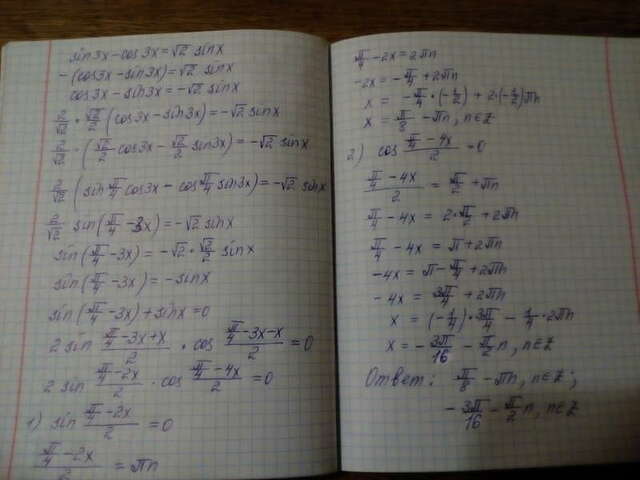 sin3x-cos3x=√2 sinx
-(cos3x-sin3x)=√2 sinx
cos3x-sin3x=-√2 sinx
2/√2 · √2/2 (cos3x-sin3x)=-√2 sinx
2/√2 · (√2/2 cos3x-√2/2 sin3x)=-√2 sinx
2/√2 (sin π/4 cos3x-cos π/4 sin3x)=-√2 sinx
2/√2 sin(π/4-3x)=-√2 sinx
sin(π/4-3x)=-√2·√2/2 sinx
sin(π/4-3x)=-sinx
sin(π/4-3x)+sinx=0
2 sin (π/4-3x+x)/2 · cos (π/4-3x-x)/2=0
2 sin (π/4-2x)/2 · cos (π/4-4x)/2=0
1) sin (π/4-2x)/2=0
(π/4-2x)/2=πn
π/4-2x=2πn
-2x=-π/4+2πn
x=-π/4·(-1/2)+2·(-1/2)πn
x=π/8-πn, n∈Z
2) cos (π/4-4x)/2=0
(π/4-4x)/2=π/2+πn
π/4-4x=2·π/2+2πn
π/4-4x=π+2πn
-4x=π-π/4+2πn
-4x=3π/4+2πn
x=(-1/4)·3π/4-1/4·2πn
x=-3π/16-π/2 n, n∈Z
Ответ: π/8-πn, n∈Z;
-3π/16-π/2 n, n∈Z